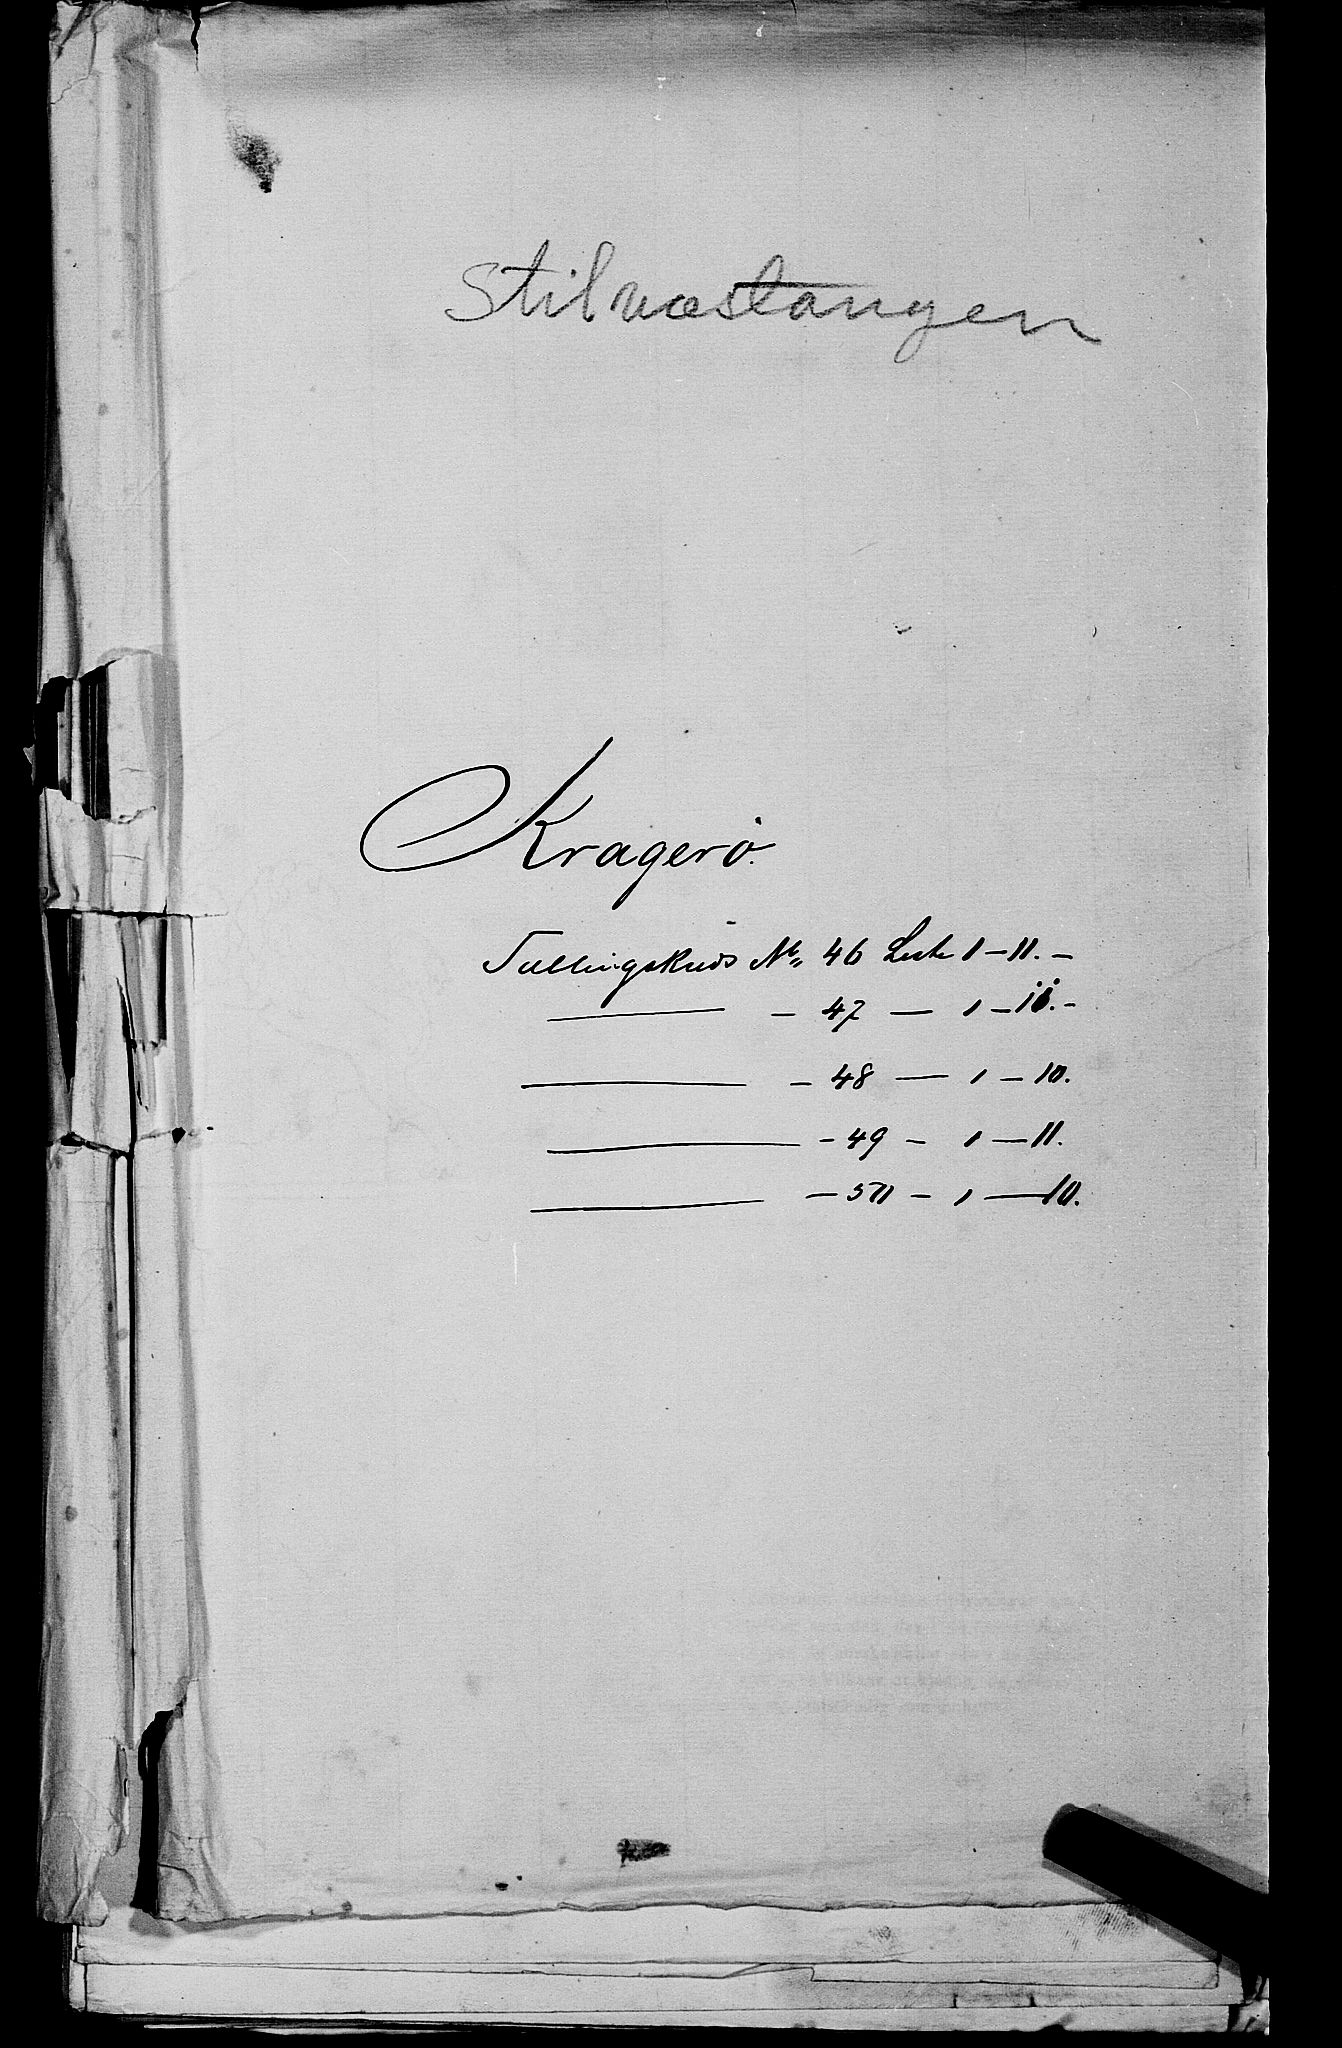 Stilnæstangen
Kragerö.
Tællingskreds No. 46 Liste 1 – 11. –
— – 47 — 1 – 11. –
— – 48 — 1 – 10.
— – 49 – 1 — 11.
— – 50 – 1 — 10.